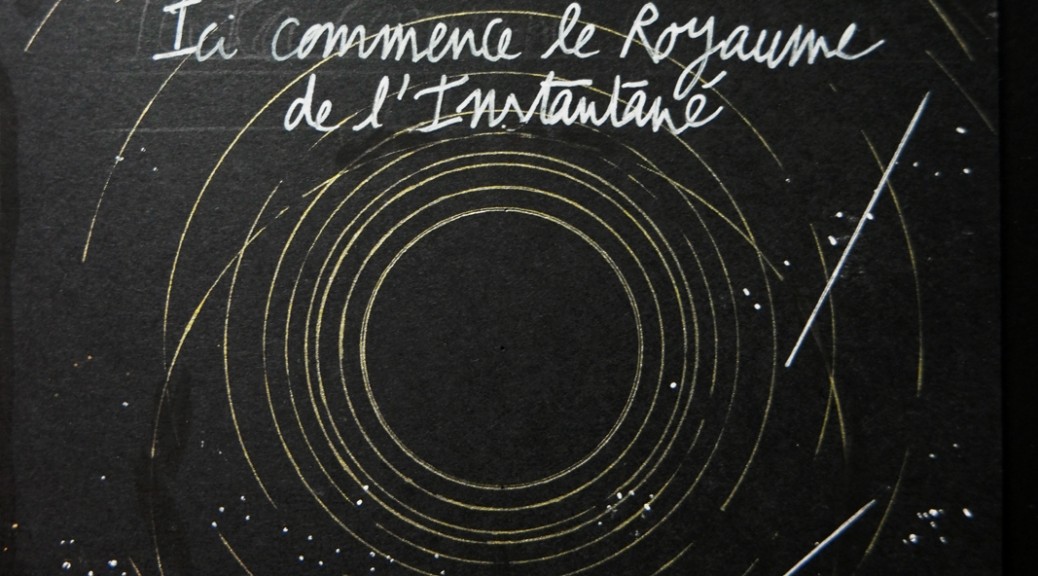 Ici commence le Royaume
de l'Instantané